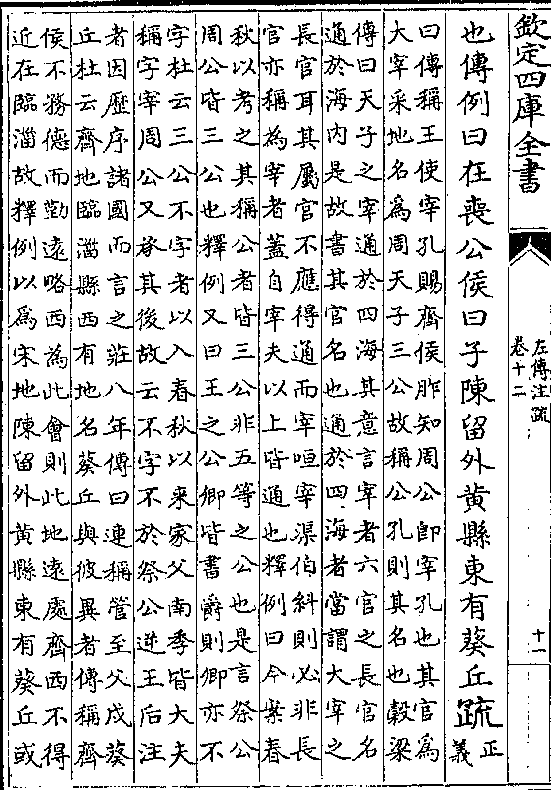 欽定四庫全書
左傳注疏
卷十二
十一
也傳例曰在喪公侯曰子陳留外黃縣東有葵丘疏正義
曰傳稱王使宰孔賜齊侯胙知周公卽宰孔也其官爲
大宰采地名爲周天子三公故稱公孔則其名也穀梁
傳曰天子之宰通於四海其意言宰者六官之長官名
通於海內是故書其官名也通於四海者當謂大宰之
長官耳其屬官不應得通而宰咺宰渠伯糾則必非長
官亦稱為宰者蓋自宰夫以上皆通也釋例曰今案春
秋以考之其稱公者皆三公非五等之公也是言祭公
周公皆三公也釋例又曰王之公卿皆書爵則卿亦不
字杜云三公不字者以入春秋以來家父南季皆大夫
稱字宰周公又發其後故云不字不於祭公逆王后注
者因歷序諸國而言之莊八年傳曰連稱管至父戍葵
丘杜云齊地臨淄縣西有地名葵丘與彼異者傳稱齊
侯不務德而勤遠略西為此會則此地遠處齊西不得
近在臨淄故釋例以爲宋地陳留外黃縣東有葵丘或